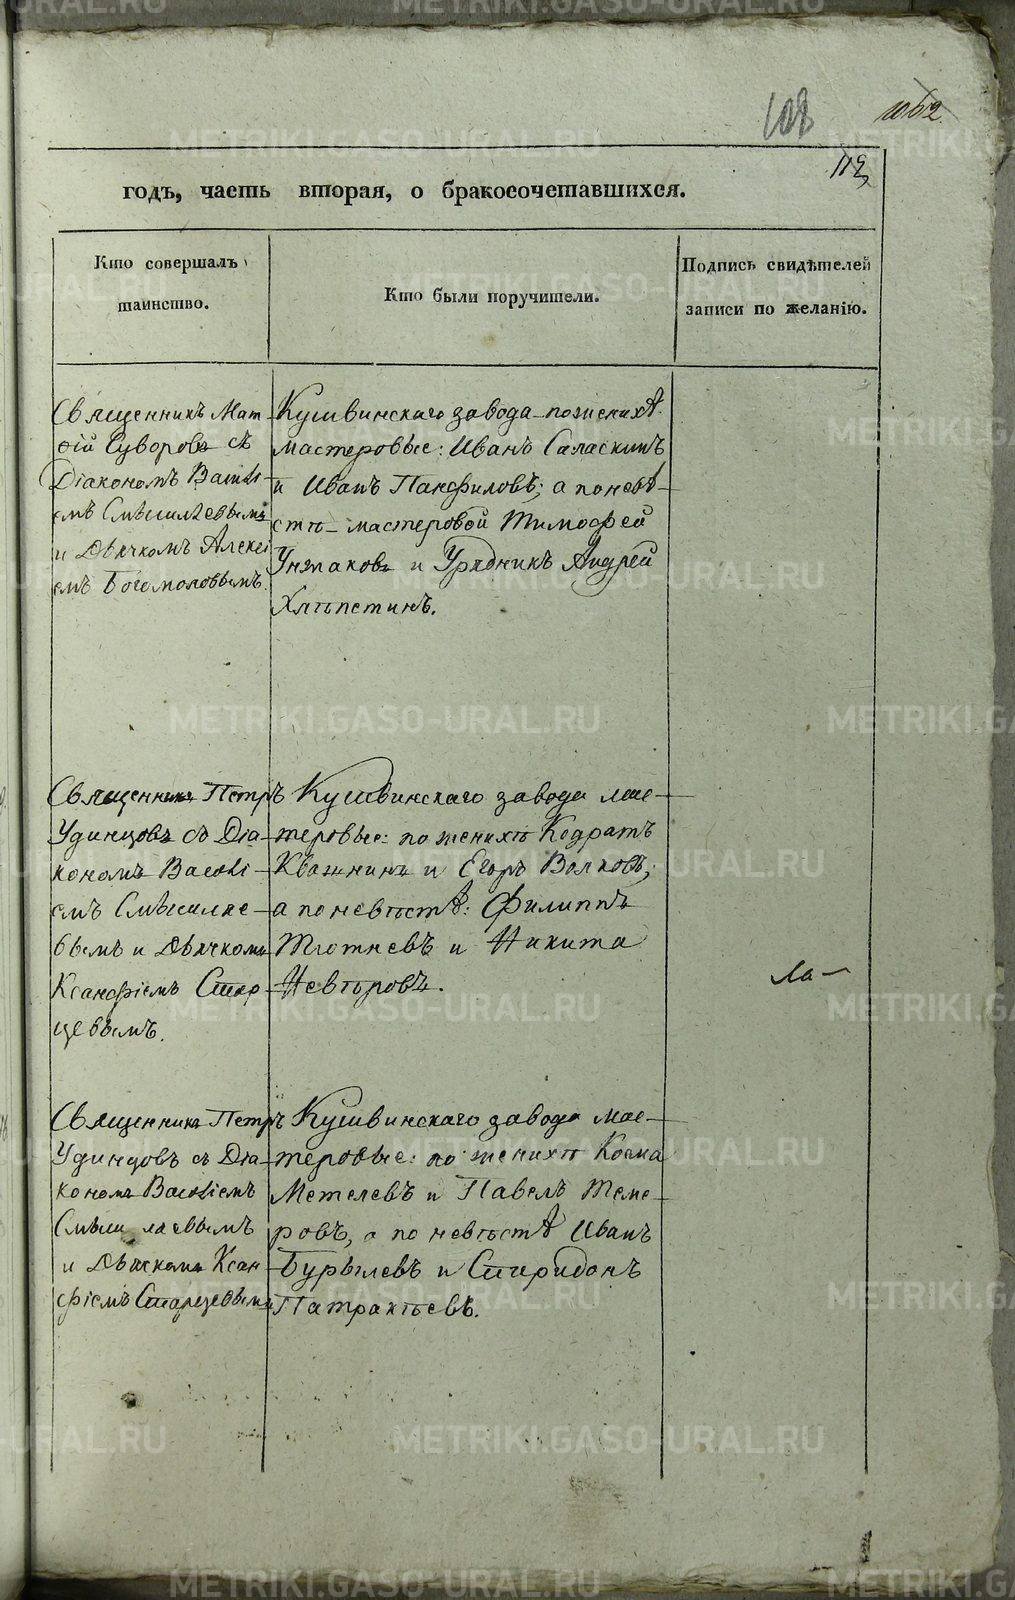 108
1062
112
годъ, часть вторая, о бракосочетавшихся.
Кто совершалъ
таинство.
Кто были поручители.
Подпись свидѣтелей
записи по желанію.
Священникъ Мат-
фій Суворовъ съ
Діакономъ Василі-
емъ Смышляевымъ
и Дьячкомъ Алексі
емъ Богомоловымъ.
Кушвинскаго завода по женихѣ
мастеровые: Иванъ Саласкинъ
и Иванъ Панфиловъ; а по невѣ-
стѣ - мастеровой Тимофей
и Урядникъ Андрей
Хлѣпетинъ.
Священникъ Петръ
Удинцовъ съ Діа-
кономъ Василі-
емъ Смышляе-
вымъ и Дьячкомъ
Ксанфіемъ Стар-
цевымъ.
Кушвинскаго завода мас-
теровые: по женихѣ Кодратъ
Квашнинъ и Егоръ Волковъ;
а по невѣстѣ: Филиппъ
и Никита
Невѣровъ.
Священникъ Петръ
Удинцовъ съ Діа-
кономъ Василіемъ
Смышляевымъ
и Дьячкомъ Ксан-
фіемъ Старцевымъ
Кушвинскаго завода мас-
теровые: по женихѣ Козма
Метелевъ и Павелъ Теме-
ровъ, а по невѣстѣ Иванъ
Бурылевъ и Спиридонъ
Патракѣевъ.
ла-
METRIKI.GASO-URAL.RU